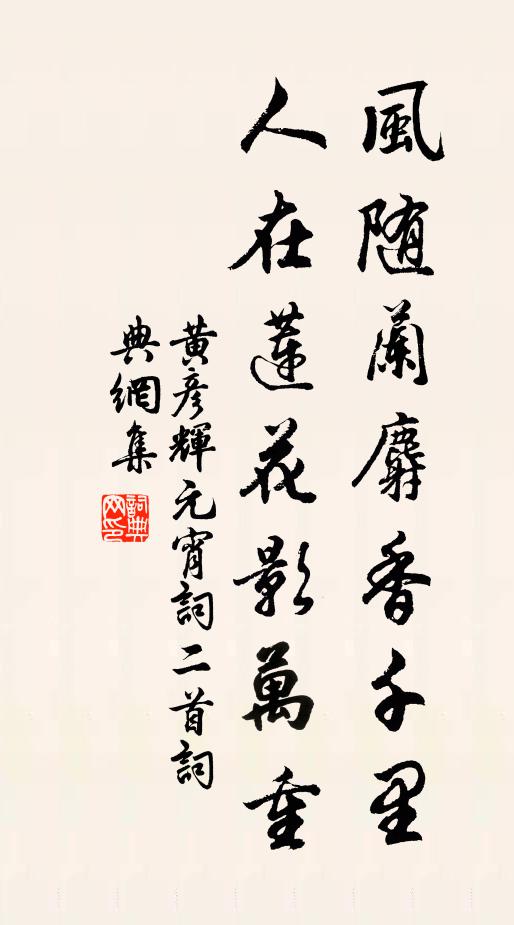 風随蘭麝香千里
人在蓮花影萬重
黃彦輝元宵詞二首詞
典網集
詞典
网印